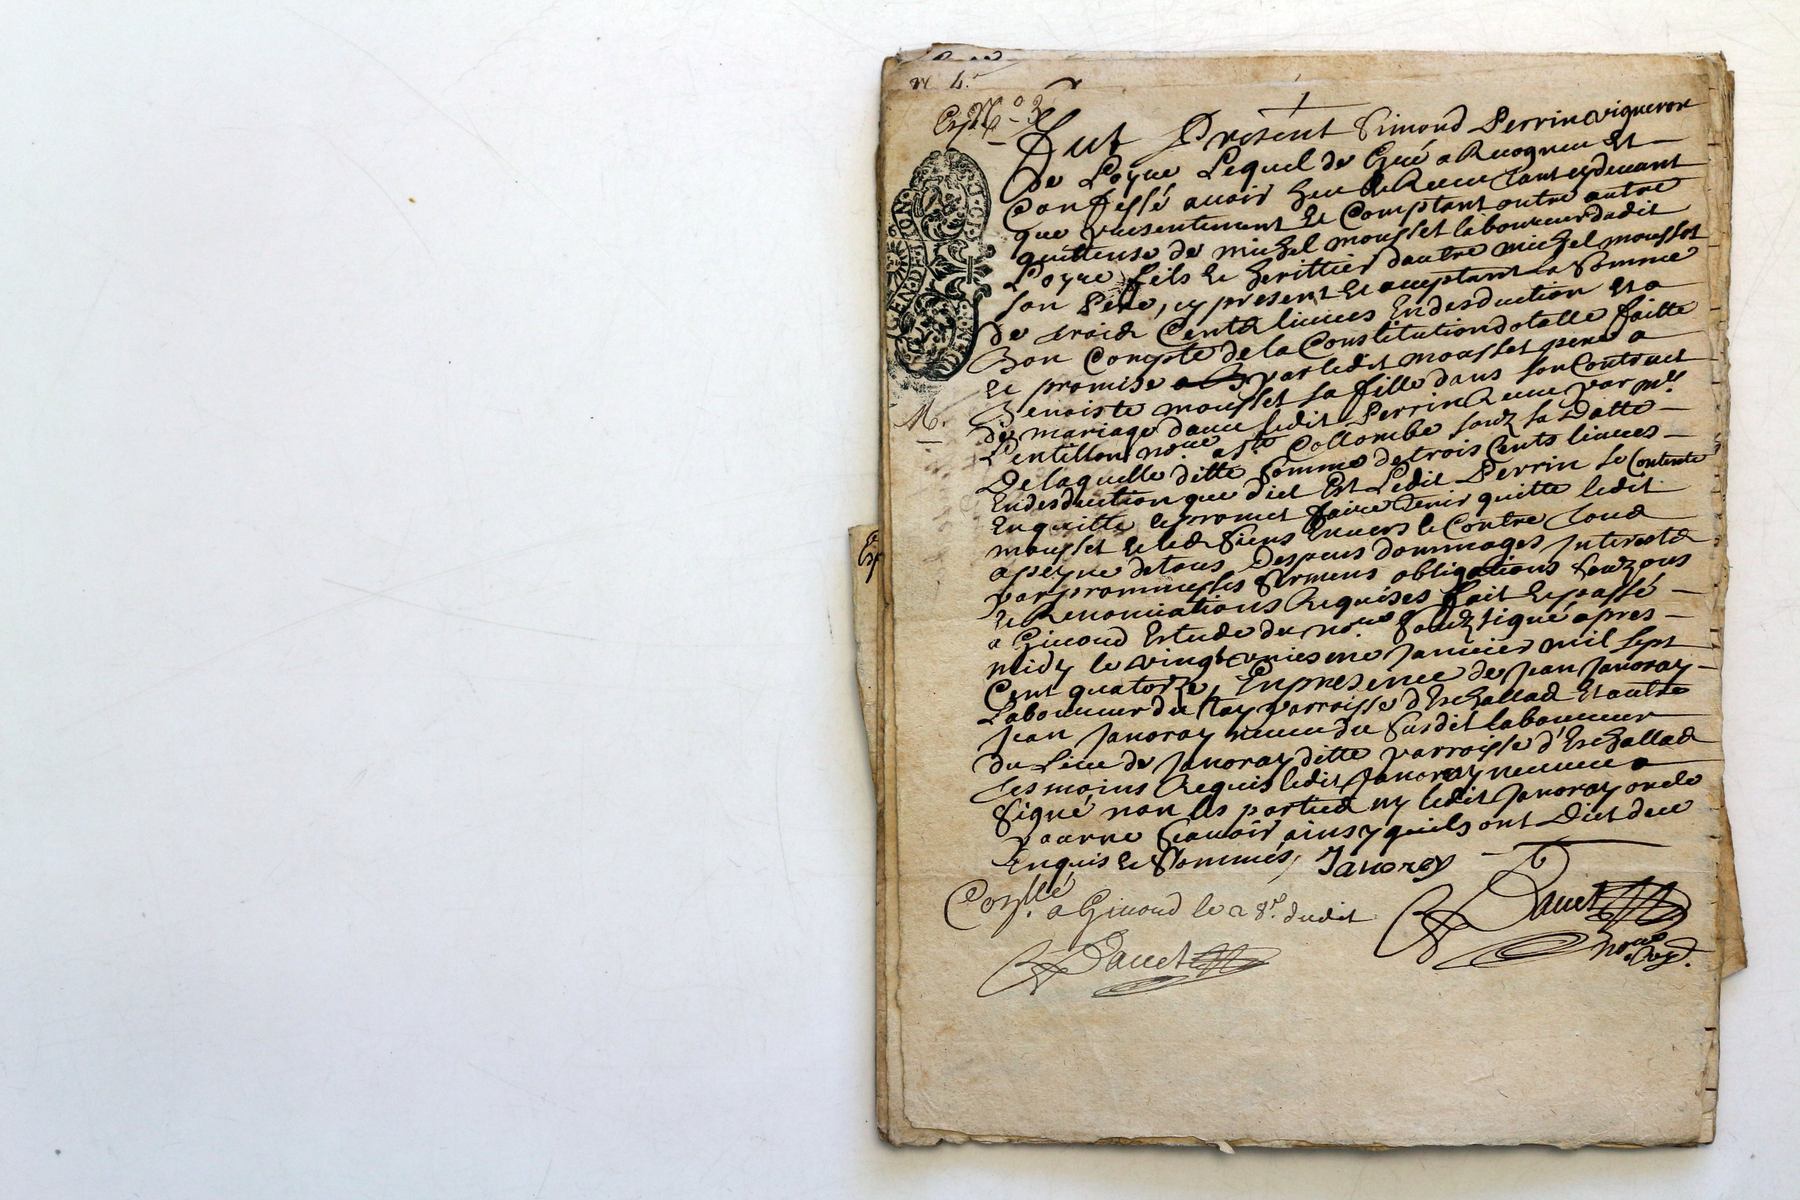 n 4.
Exp N° 3
Fut Present Simond Perrin vigneron
de Loyre Lequel de Gré a Recogneu Et
Confessé auoir heu & Receu tant cy deuant
que presentement & Comptant outre autre
quittense de michel mousset laboureur dudit
Loyre fils & herittier dautre michel mousset
son Pere, cy present Et acceptant La Somme
de trois Cents liures En desduction Et a
Bon Compte de la Constitution dotalle faitte
& promise par ledit mousset pere a
Benoiste mousset sa fille dans son Contract
de mariage dauec ledit Perrin Receu par me
Pentillon nore a Ste Collombe soubz sa Datte
De laquelle ditte Somme de trois Cents liures
En desduction que dict Est Ledit Perrin se Contente
En quitte & promet faire tenir quitte ledit
mousset & les Siens Enuers & Contre tous
a peyne de tous Despens dommages Interests
par prommesses Sermens obligations Soubz ons
& Renonciations Requises fait & passé
a Giuord Estude du nore Soubz signé apres
midy le vingt vniesme Januier mil sept
Cent quatorze, En presence de Jean Janoray
Laboureur du Lay parroisse d'Eschallas Et autre
Jean Janoray neueu du Susdit laboureur
du Lieu de Janoray ditte parroisse d'Eschallas
tesmoins Requis ledit Janoray neueu a
Signé non les parties ny ledit Janoray oncle
pour ne Scauoir ainsy quils ont Dict de ce
Enquis & Sommés, Janorey
Conllé a Giuord le 28e dudit
nore Roy.
M.